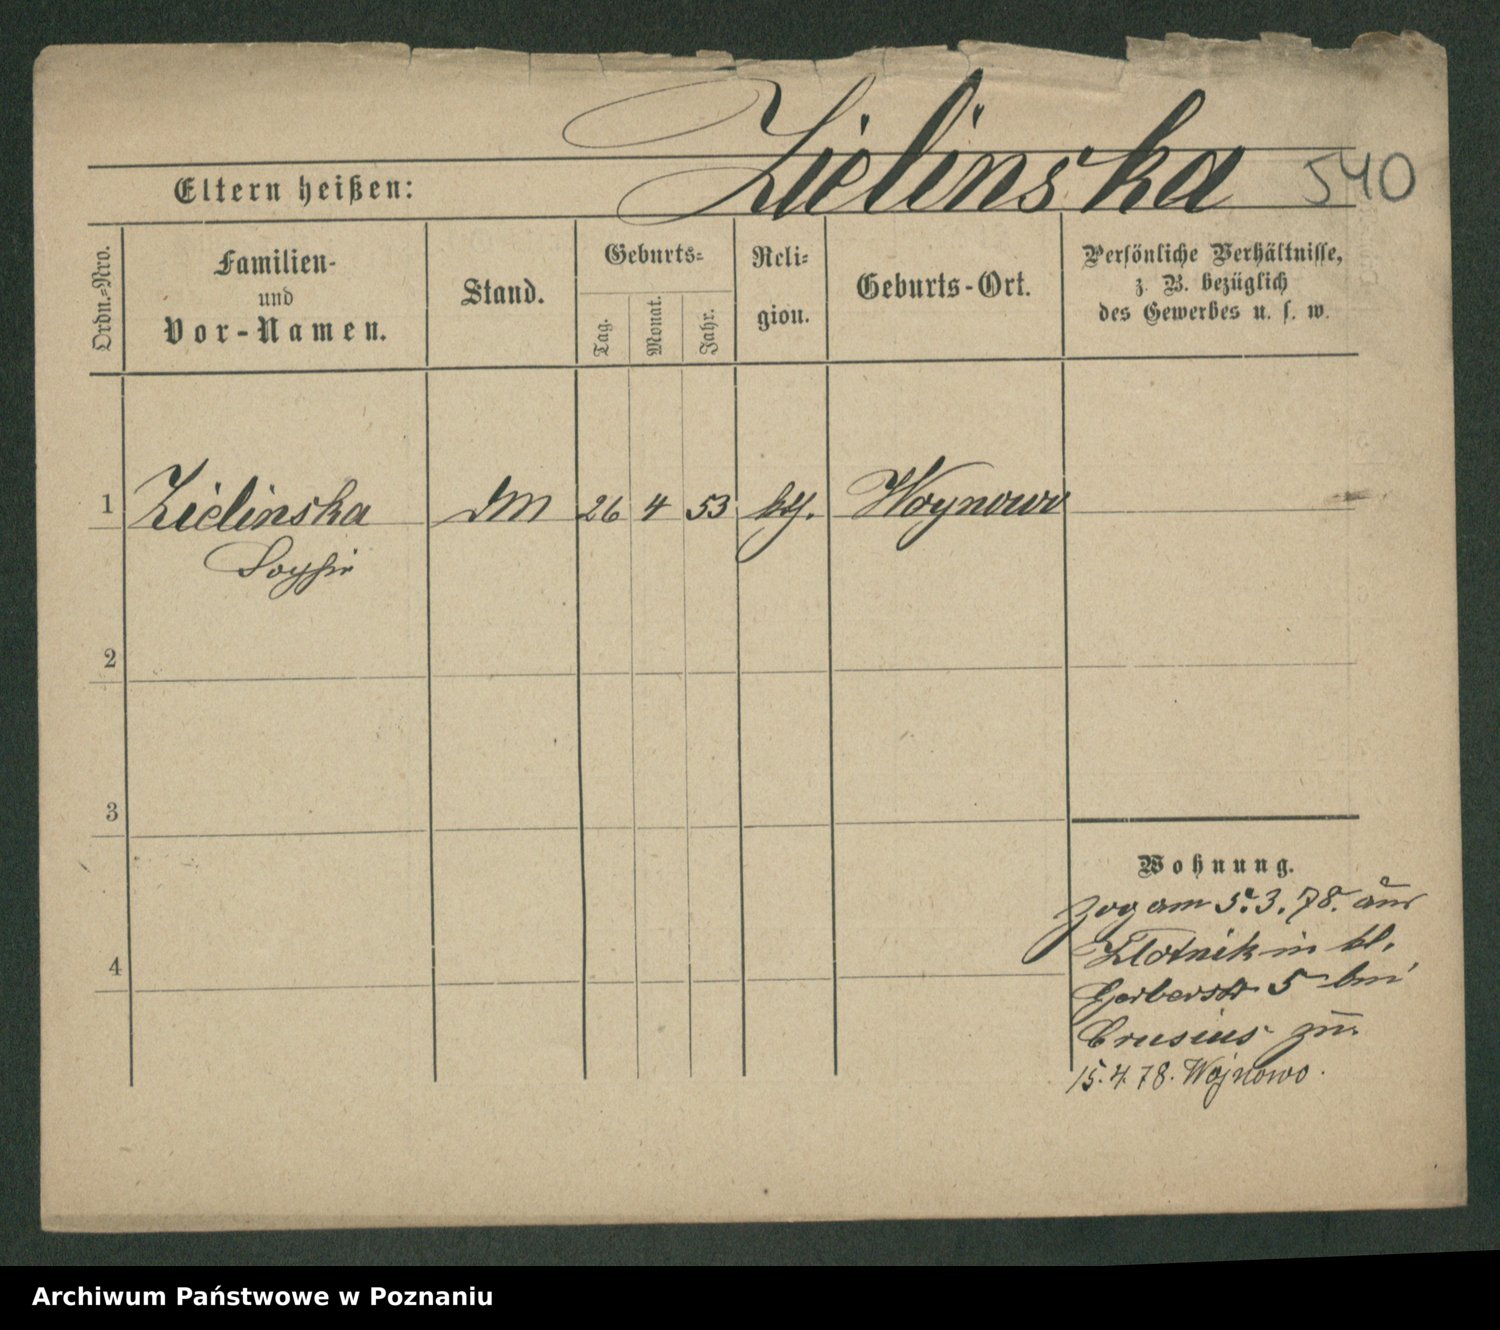 Zielinska 540
Eltern heißen:
Ordn.-Nro.
Familien-
und
Vor-Namen.
Stand.
Geburts-
Tag.
Monat.
Jahr.
Reli-
gion.
Geburts-Ort.
Persönliche Verhältnisse,
z. B. bezüglich
des Gewerbes u. s. w.
1 Zielinska DM 26 4 53 kth. Woynowo
Sophie
2
3
4
Wohnung.
zog am 5.3.78. aus
Zlotnik in kl.
Gerberstr 5 bei
Crusius zu.
15.4.78. Wojnowo.
Archiwum Państwowe w Poznaniu